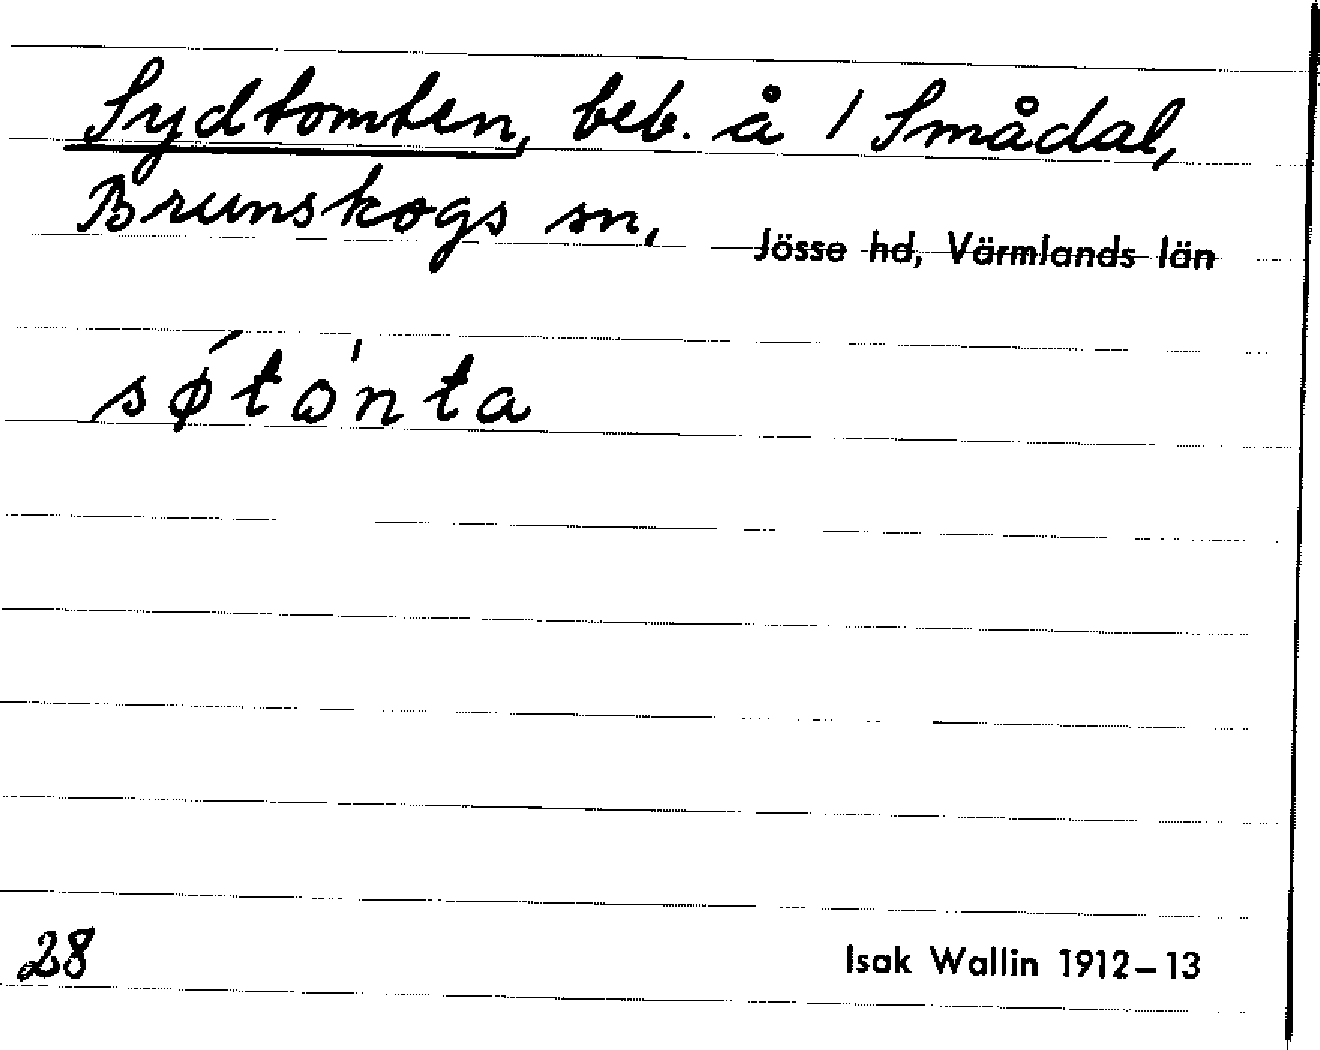 Sydtomten, beb. å 1 Smådal,
Brunskogs sn, Jösse hd, Värmlands län
sǿtω'nta
28 Isak Wallin 1912–13